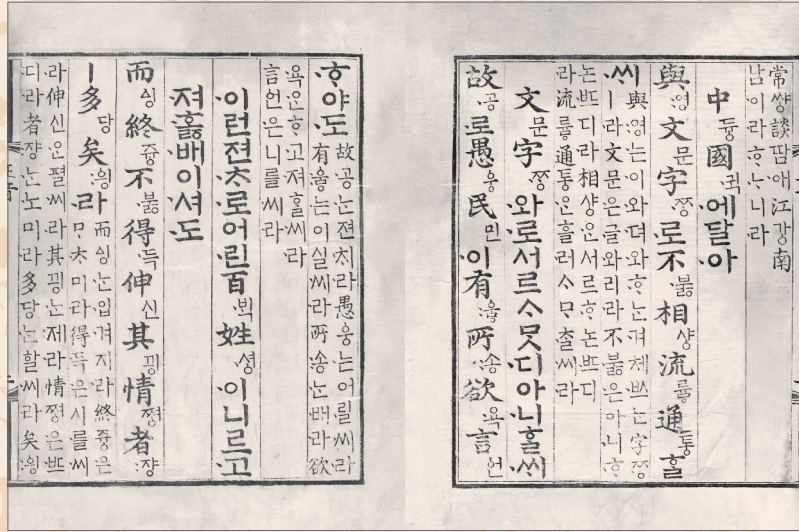 常쌰ᇰ談땀애江가ᇰ南
남이라ᄒᆞᄂᆞ니라
中듀ᇰ國귁에달아
與영文문字ᄍᆞᆼ로不부ᇙ相샤ᇰ流류ᇢ通토ᇰᄒᆞᇙ
ᄊᆡ與영는이와뎌와ᄒᆞ는겨체ᄡᅳ는字ᄍᆞᆼ
ㅣ라文문은글와리라不부ᇙ은아니ᄒᆞ
논ᄠᅳ디라相샤ᇰ은서르ᄒᆞ논ᄠᅳ디
라流류ᇢ通토ᇰ은흘러ᄉᆞᄆᆞᄎᆞᆯ씨라
文문字ᄍᆞᆼ와로서르ᄉᆞᄆᆞᆺ디아니ᄒᆞᆯᄊᆡ
故공로愚ᅌᅮᆼ民민이有우ᇢ所송欲욕言언
ᄒᆞ야도故공는젼ᄎᆡ라愚ᅌᅮᆼ는어릴씨라
有우ᇢ는이실씨라所송는배라欲
욕은ᄒᆞ고져ᄒᆞᆯ씨라
言언은니를씨라
이런젼ᄎᆞ로어린百ᄇᆡᆨ姓셔ᇰ이니르고
져호ᇙ배이셔도
而ᅀᅵᆼ終쥬ᇰ不부ᇙ得득伸신其끵情쪄ᇰ者쟝
ㅣ多당矣ᅌᅴᆼ라而ᅀᅵᆼ는입겨지라終쥬ᇰ은
ᄆᆞᄎᆞ미라得득은시를씨
라伸신은펼씨라其끵는제라情쪄ᇰ은ᄠᅳ
디라者쟝는노미라多당는할씨라矣ᅌᅴᆼ